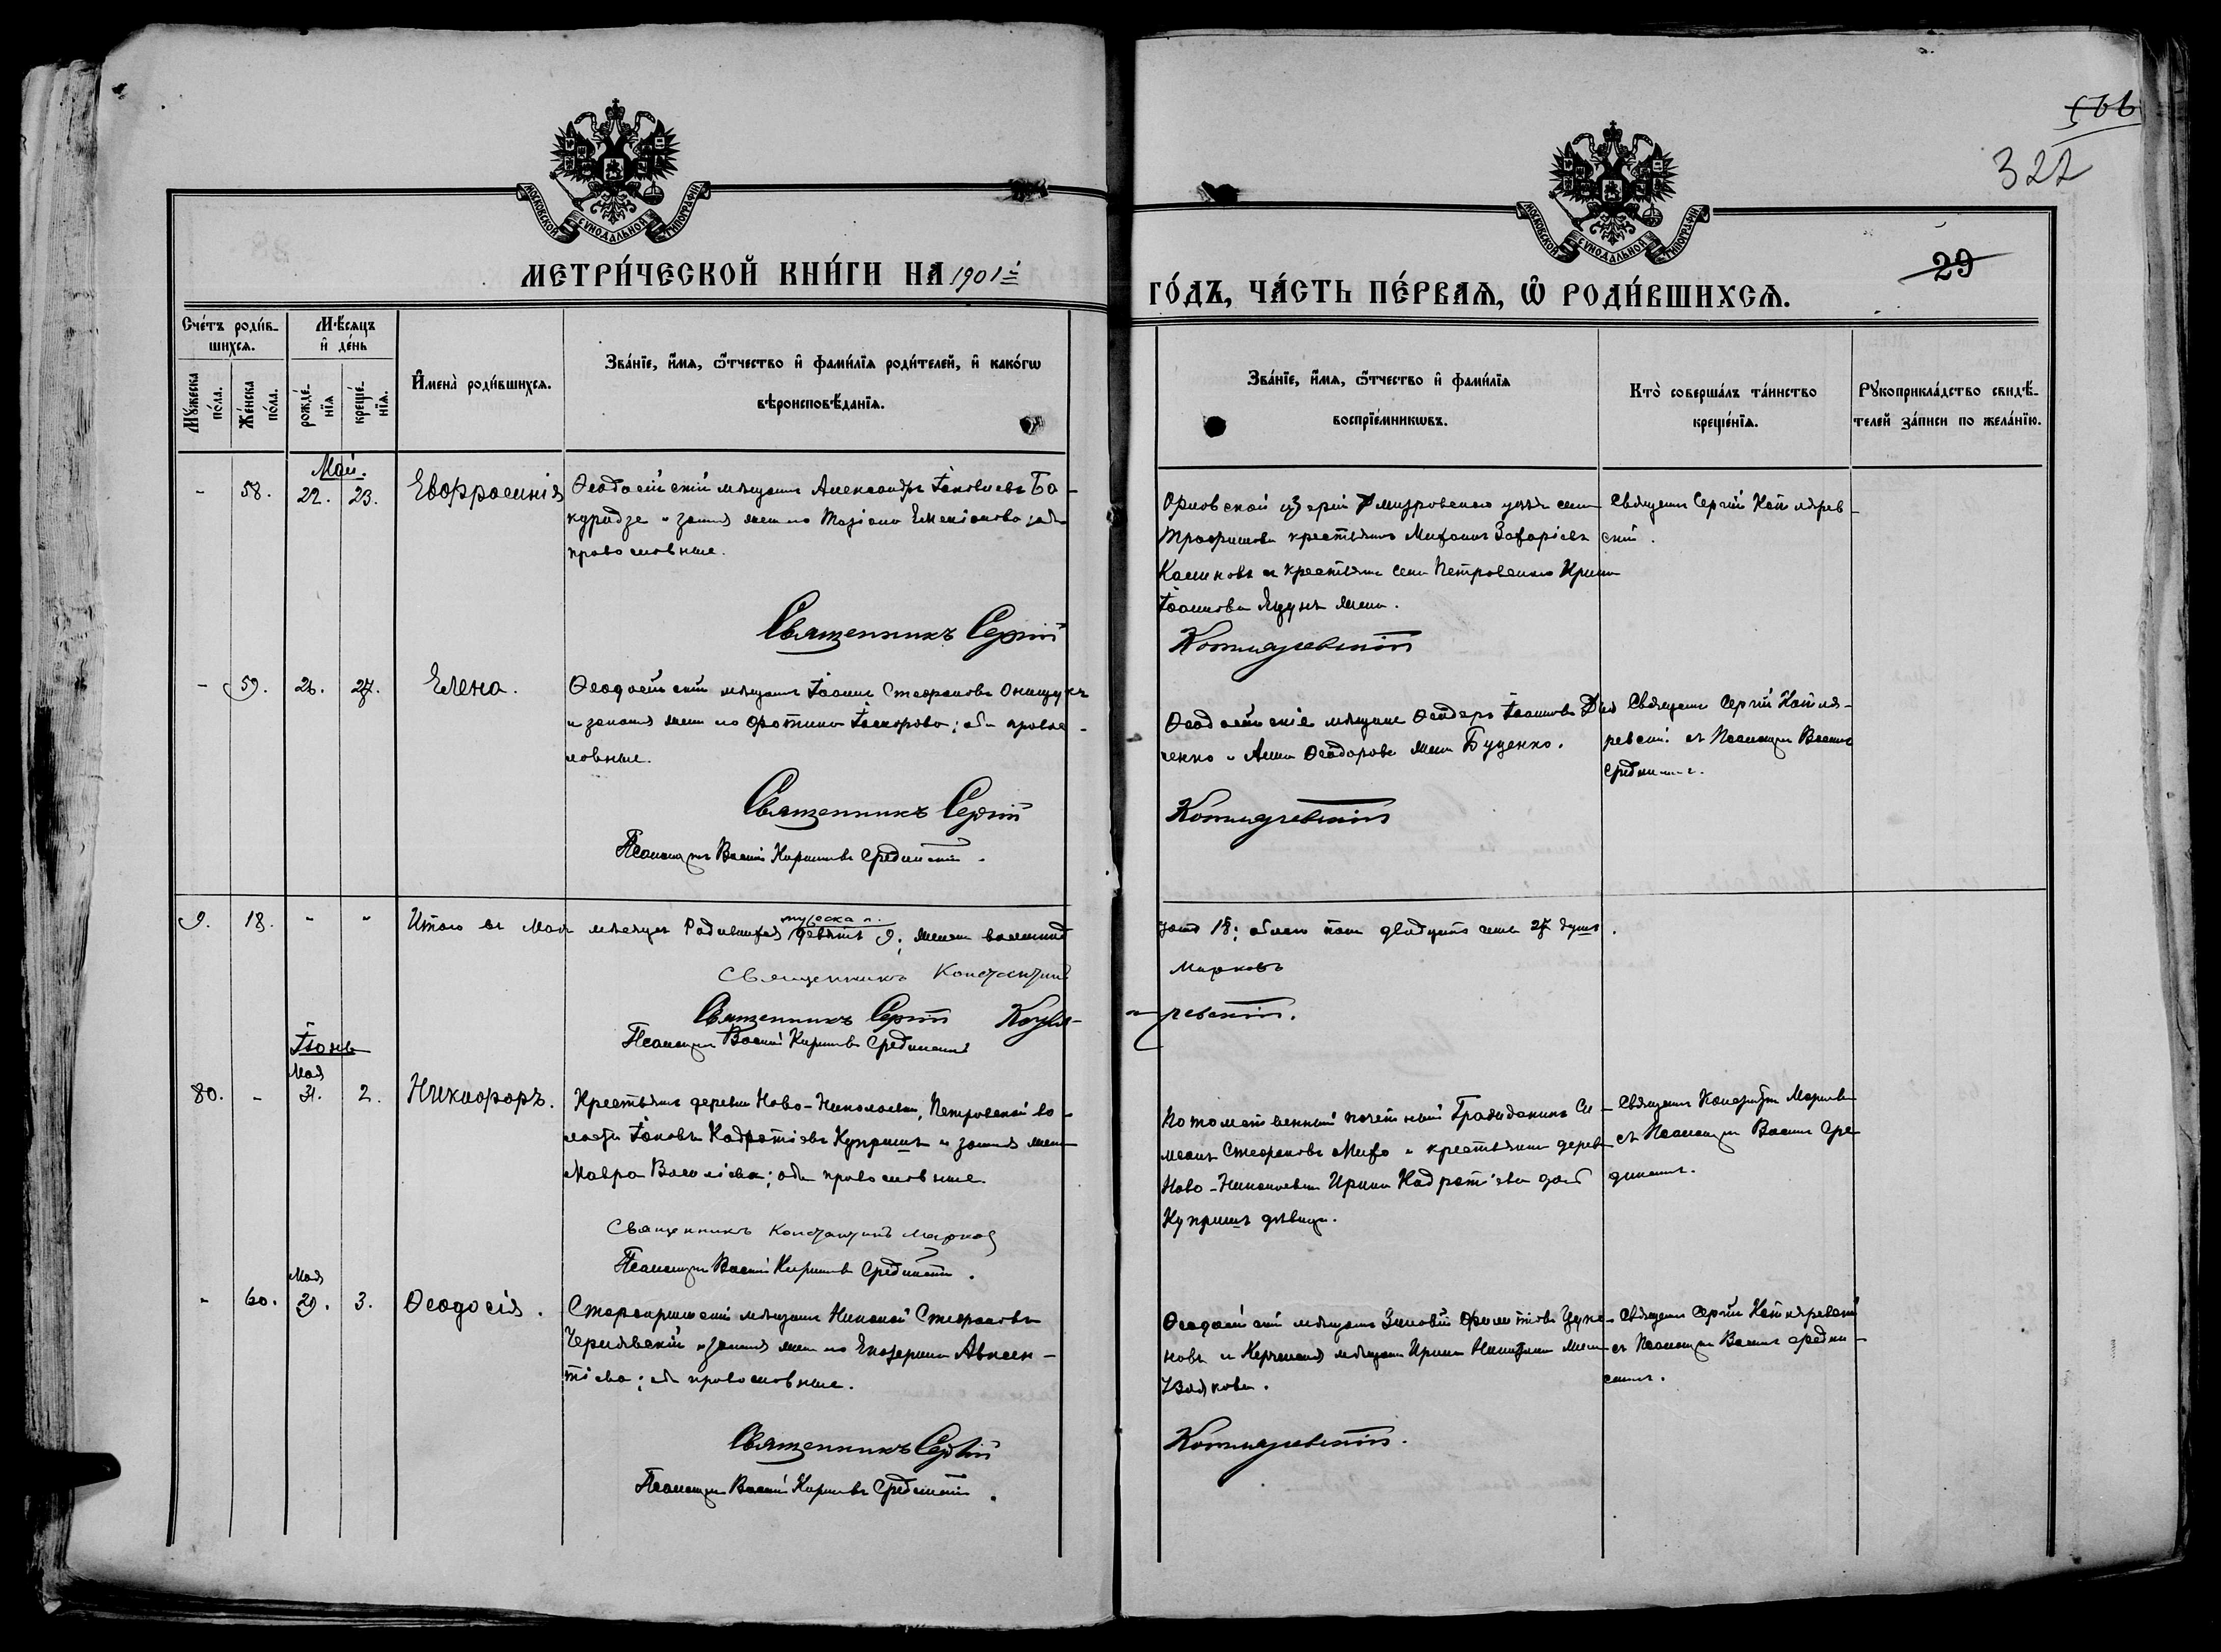 566
322
29
МОСКОВСКОЙ СУНОДАЛЬНОЙ ТИПОГРАФІИ
МОСКОВСКОЙ СУНОДАЛЬНОЙ ТИПОГРАФІИ
МЕТРИ́ЧЕСКОЙ КНИ́ГИ НА 1901й
ГО́ДЪ, ЧА́СТЬ ПЕ́РВАѦ, Ѡ҆ РОДИ́ВШИХСѦ.
Сче́тъ роди́в-
шихсѧ.
Мꙋ́жеска по́ла.
Же́нска по́ла.
Мѣ́сяцъ и҆ де́нь
рожде́-нїѧ
креще́-нїѧ.
И҆мена̀ роди́вшихсѧ.
Зва́нїе, и҆́мѧ, ѻ҆́тчество и҆ фами́лїѧ роди́телей, и҆ како́гѡ
вѣроисповѣ́данїѧ.
Зва́нїе, и҆́мѧ, ѻ҆́тчество и҆ фами́лїѧ
воспрїе́мникѡвъ.
Кто̀ соверша́лъ та́инство
креще́нїѧ.
Рꙋкоприкла́дство свидѣ́-
телей за́писи по жела́нїю.
Май.
- 58. 22. 23. Евфросинія
Ѳеодосійскій мѣщанинъ Александръ Іаковлевъ Ба-
куридзе и законная жена его Емеліанова оба
православные.
Священникъ Сергій
Орловской губерніи Дмитровскаго уѣзда села
Трофимова крестьянинъ Михаилъ Захаріевъ
и крестьянка села Петровскаго Ирина
Іоаннова жена.
Котляревскій
Священникъ Сергій Котлярев-
скій.
- 59. 26. 27. Елена.
Ѳеодосійскій мѣщанинъ Іоаннъ Стефановъ Онищукъ
и законная жена его Фотина; оба правос-
лавные.
Священникъ Сергій
Псаломщикъ Василій Кирилловъ Срединскій.
Ѳеодосійскіе мѣщане Ѳеодоръ Іоанновъ
ченко и Анна Ѳеодорова жена Буценко.
Котляревскій
Священникъ Сергій Котля-
ревскій съ Псаломщик. Василіемъ
Срединскимъ.
9. 18. - -
Итого въ Маѣ мѣсяцѣ Родившихся мужеска п. девять 9; женска восемнад-
цать 18; обоего пола двадцать семь 27 душъ.
Священникъ Константинъ
Марковъ
Священникъ Сергій Котля-
ревскій.
Псаломщикъ Василій Кирилловъ Срединскій
Іюнь
Мая
80. - 31. 2. Никифоръ.
Крестьянинъ деревни Ново-Николаевки, Петровской во-
лости Іаковъ Кадратіевъ Купришъ и законная жена
Мавра Василіева; оба православные.
Священникъ Константинъ Марковъ
Псаломщикъ Василій Кирилловъ Срединскій.
Потомственный почетный Гражданинъ Си-
меонъ Стефановъ и крестьянка деревни
Ново-Николаевки Ирина Кадратіева дочь
Купришъ дѣвица.
Священникъ Константинъ Марковъ
съ Псаломщик. Василіемъ Сре-
динскимъ.
Мая
- 60. 29. 3. Ѳеодосія.
Старокрымскій мѣщанинъ Николай Стефановъ
Чернявскій и законная жена его Екатерина Авксен-
тіева; оба православные.
Священникъ Сергій
Псаломщикъ Василій Кирилловъ Срединскій.
Ѳеодосійскій мѣщанинъ Зиновій
новъ и Керченская мѣщанка Ирина жена
Котляревскій.
Священникъ Сергій Котляревскій
съ Псаломщик. Василіемъ Средин-
скимъ.